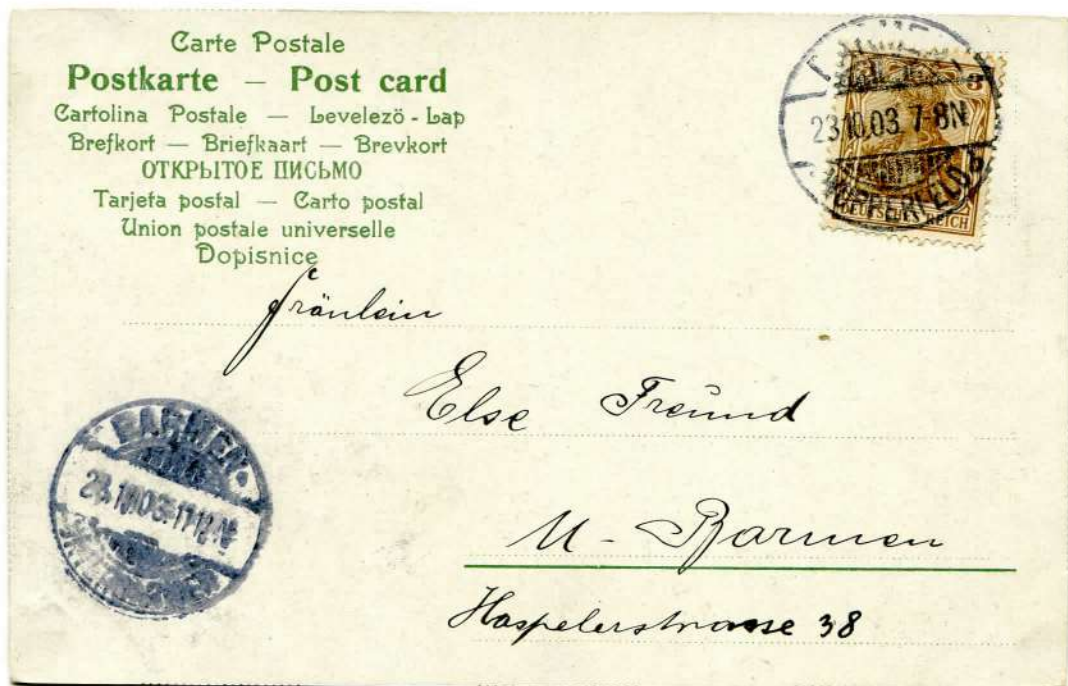 Carte Postale
Postkarte — Post card
Cartolina Postale — Levelezö - Lap
Brefkort — Briefkaart — Brevkort
ОТКРЫТОЕ ПИСЬМО
Tarjeta postal — Carto postal
Union postale universelle
Dopisnice
3
23.10.03. 7-8N
WUPPERFELD b.
DEUTSCHES REICH
Fräulein
Else Freund
U - Barmen
Haspelerstrasse 38
BARMEN
23.10.03. 11-12N